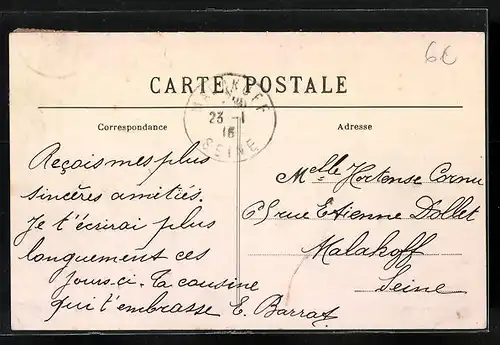 6C
CARTE POSTALE
MALAKOFF
23 - 1
16
SEINE
Correspondance
Adresse
Reçois mes plus
sincères amitiés.
Je t'écrirai plus
longuement ces
jours-ci. Ta cousine
qui t'embrasse E. Barrat
Melle Hortense Cornu
65 rue Etienne Dollet
Malakoff
Seine